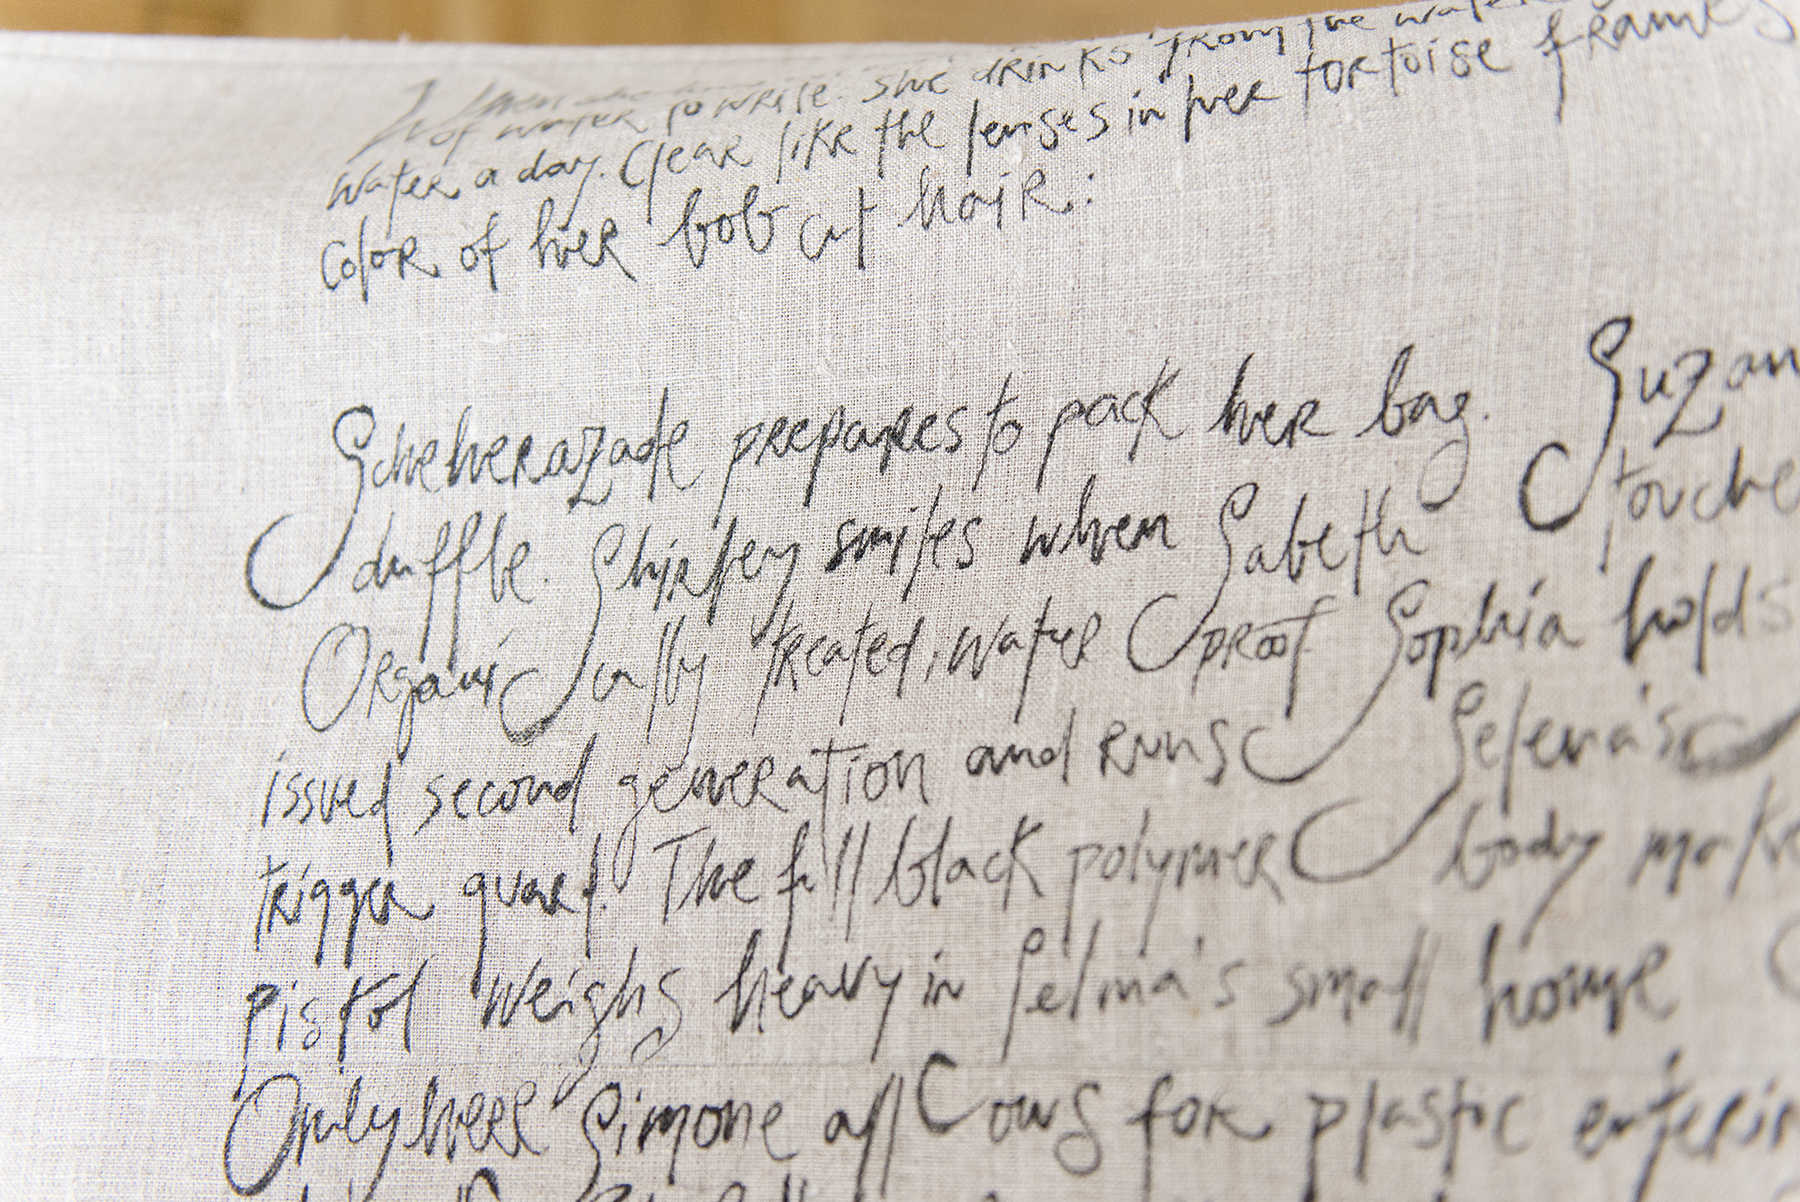 When
of water to write. She drinks from the water
water a day. Clear like the lenses in her tortoise frames
color of her bob cut hair:
Scheherazade prepares to pack her bag. Suzan
duffle. Shirley smiles when Sabeth touche
Organically treated, water proof Sophia holds
issued second generation and runs Selena's
trigger guard. The full black polymer body make
pistol weighs heavy in Selma's small home
Only here Simone allows for plastic enterin